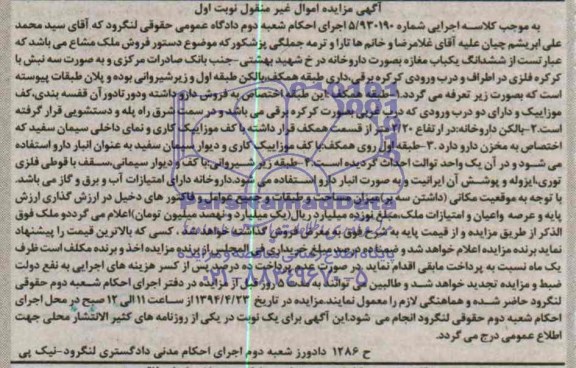 آگهی مزایده اموال غیر منقول نوبت اول
به موجب کلاسه اجرایی شماره ۵/۹۳۰۱۹۰ اجرای احکام شعبه دوم دادگاه عمومی حقوقی لنگرود که آقای سید محمد
علی ابریشم چیان علیه آقای غلامرضا و خانم ها تارا و ترمه جملگی پزشکپور که موضوع دستور فروش ملک مشاع می باشد که
عبارتست از ششدانگ یکباب مغازه بصورت داروخانه در خ شهید بهشتی-جنب بانک صادرات مرکزی و به صورت سه نبش با
کرکره فلزی در اطراف و درب ورودی کرکره برقی،داری طبقه همکف،بالکن طبقه اول و زیرشیروانی بوده و پلان طبقات پیوسته
است که بصورت زیر تعرفه می گردد.۱-طبقه همکف:این طبقه اختصاص به فروش دارو داشته ودور تادور آن قفسه بندی،کف
موزاییک و دارای دو درب ورودی که درب غربی بصورت کرکره برقی می باشد و در سمت شرق راه پله و دستشویی قرار گرفته
است.۲-بالکن داروخانه:در ارتفاع ۲/۲۰ متر از قسمت همکف قرار داشته با کف موزاییک کاری و نمای داخلی سیمان سفید که
اختصاص به مخزن دارو دارد .۳-طبقه اول روی همکف:با کف موزاییک کاری و دیوار سیمان سفید به عنوان انبار دارو استفاده
می شود و در آن یک واحد توالت احداث گردیده است.۴-طبقه زیر شیروانی:با کف و دیوار سیمانی،سقف با قوطی فلزی
توری،ایزوله و پوشش آن ایرانیت و به صورت انبار دارو استفاده می شود.داروخانه دارای امتیازات آب و برق و گاز می باشد.
با توجه به موقعیت مکانی (داشتن سه بر) میزان مساحت و طبقات و جمیع عوامل و فاکتور های دخیل در ارزش گذاری ارزش
پایه و عرصه واعیان و امتیازات ملک،مبلغ نوزده میلیارد ریال(یک میلیارد و نهصد میلیون تومان)اعلام می گردد و ملک فوق
الذکر از طریق مزایده و از قیمت پایه به شرح فوق به معرض فروش گذاشته خواهد شد ، کسی که بالاترین قیمت را پیشنهاد
نماید برنده مزایده اعلام خواهد شد و ضمنا ده درصد مبلغ خریداری فی المجلس از برنده مزایده اخذ و برنده مکلف است ظرف
یک ماه نسبت به پرداخت مابقی اقدام نماید در صورت عدم پرداخت ده درصد پس از کسر هزینه های اجرایی به نفع دولت
ضبط و مزایده تجدید خواهد شد و طالبین می توانند به مدت ۵ روز قبل از مزایده در دفتر اجرای احکام شعبه دوم حقوقی
لنگرود حاضر شده و هماهنگی لازم را معمول نمایند.مزایده در تاریخ ۱۳۹۴/۴/۲۳ از ساعت ۱۱ الی ۱۲ صبح در محل اجرای
احکام شعبه دوم حقوقی لنگرود انجام می شود.این آگهی برای یک نوبت در یکی از روزنامه های کثیر الانتشار محلی جهت
اطلاع عمومی درج می گردد.
ح ۱۲۸۶ دادورز شعبه دوم اجرای احکام مدنی دادگستری لنگرود-نیک پی